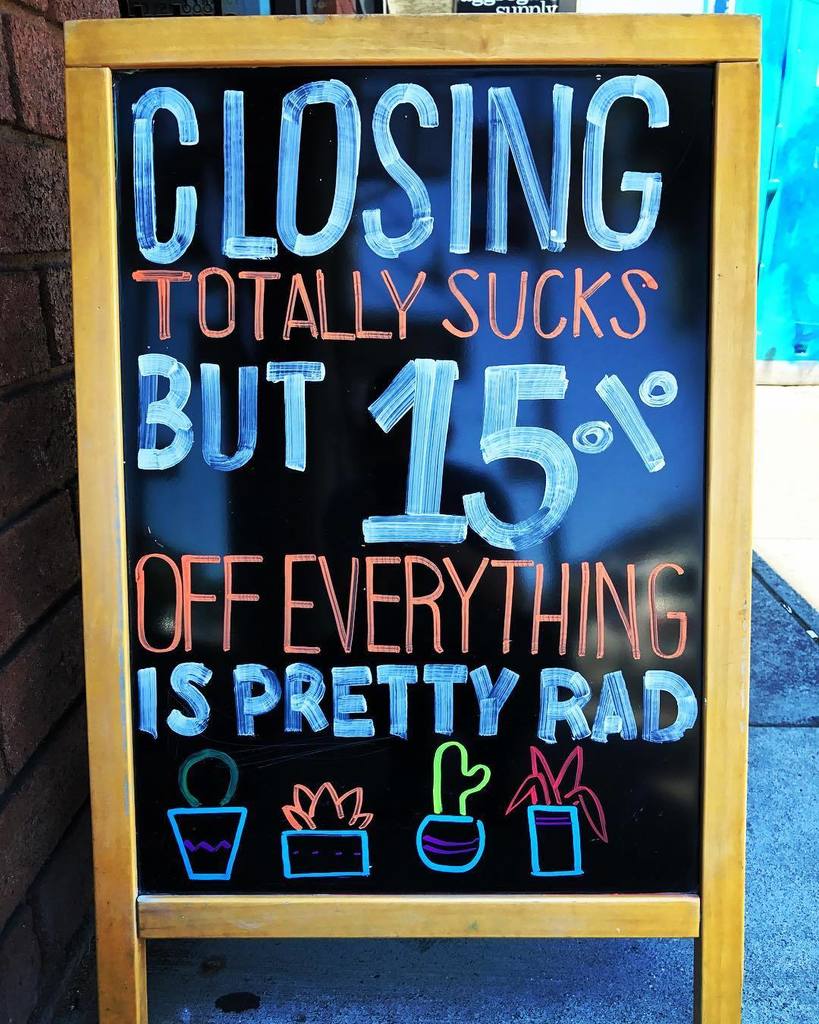 supply
CLOSING
TOTALLY SUCKS
BUT 15%
OFF EVERYTHING
IS PRETTY RAD